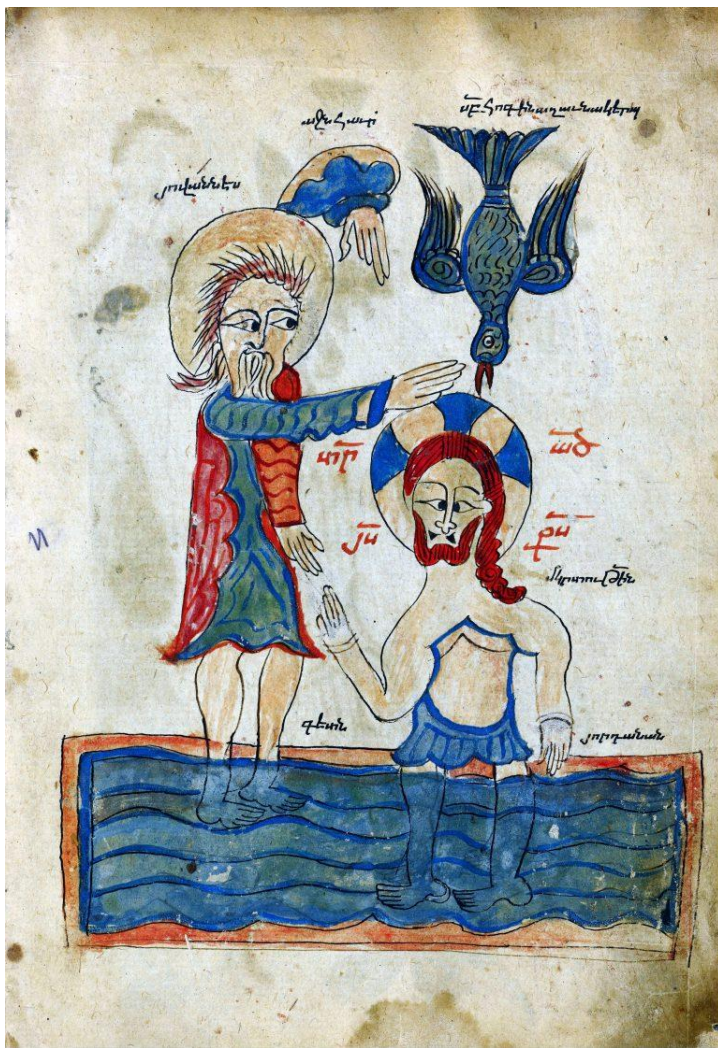 աջն հաւր
ս՟բ հոգին աղաւնակերպ
յովաննես
տ՟ր ա՟ծ
յ՟ս ք՟ս
մկրտութին
գետն յորդանան